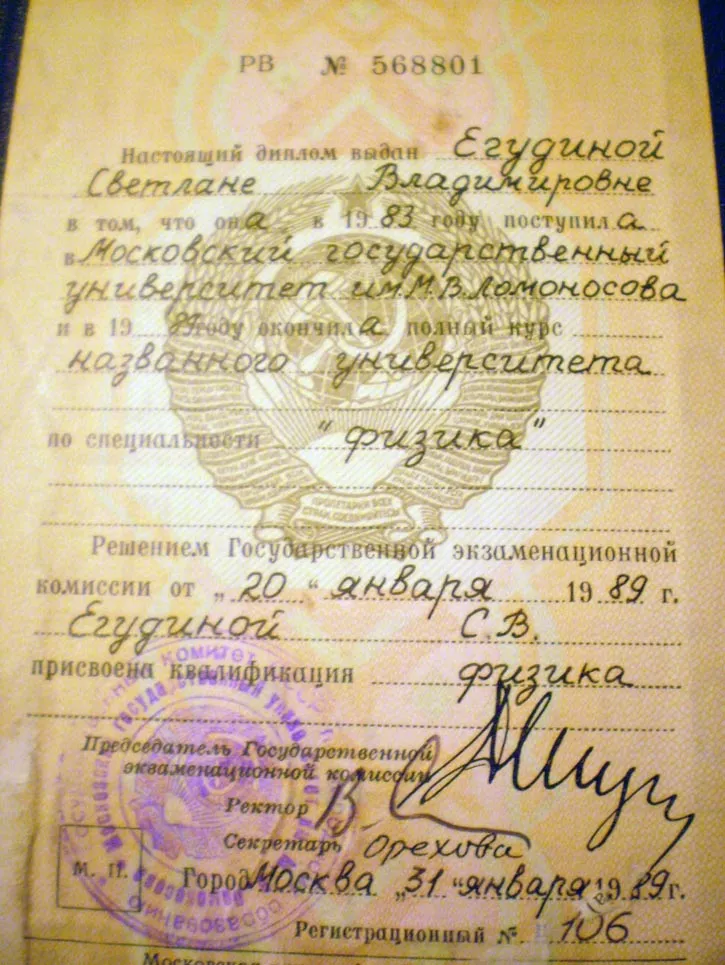 РВ № 568801
Настоящий диплом выдан Егудиной
Светлане Владимировне
в том, что она в 1983 году поступила
в Московский государственный
университет им. М.В. Ломоносова
и в 1989 году окончила полный курс
названного университета
по специальности "физика"
Решением Государственной экзаменационной
комиссии от „20“ января 1989 г.
Егудиной С.В.
присвоена квалификация физика
Председатель Государственной
экзаменационной комиссии
Ректор
Секретарь Орехова
М. П.
Город Москва „31“ января 1989 г.
Регистрационный № 106